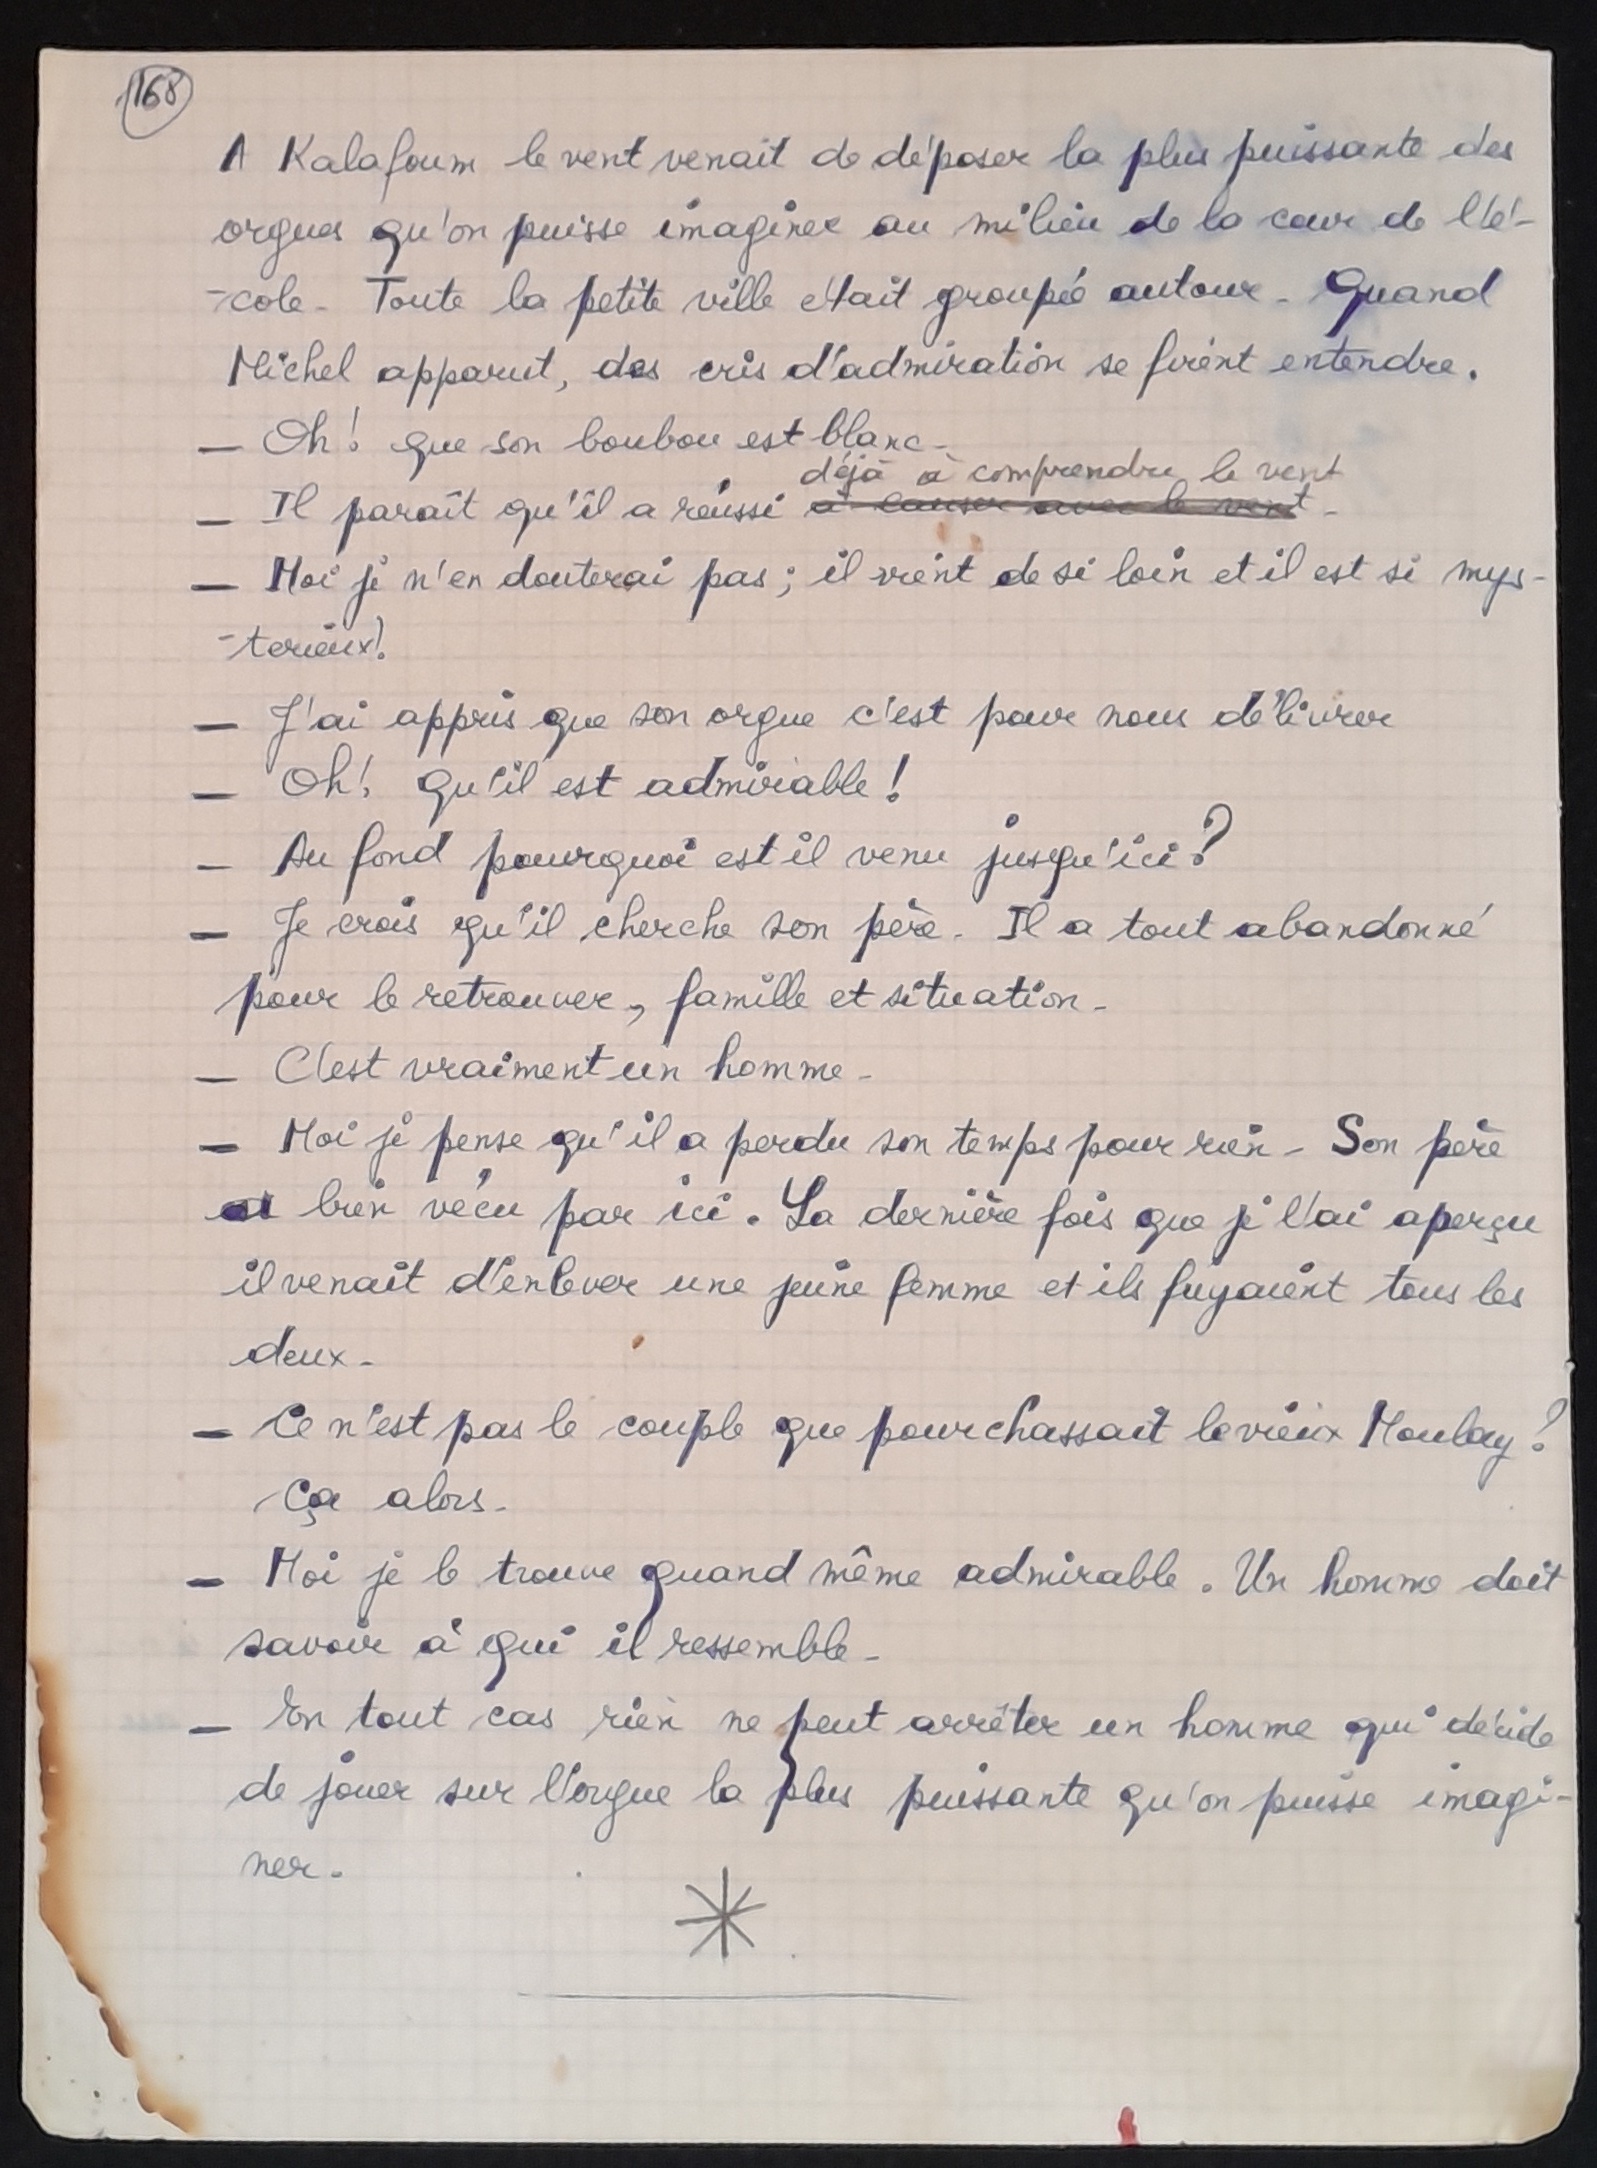 168
A Kalafoum le vent venait de déposer la plus puissante des
orgues qu'on puisse imaginer au milieu de la cour de l'é-
-cole. Toute la petite ville était groupée autour. Quand
Michel apparut, des cris d'admiration se firent entendre.
— Oh! que son boubou est blanc.
déjà à comprendre le vent
— Il paraît qu'il a réussi à causer avec le vent.
— Moi je n'en douterai pas; il vient de si loin et il est si mys-
-terieux!
— J'ai appris que son orgue c'est pour nous délivrer
— Oh! qu'il est admirable!
— Au fond pourquoi est il venu jusqu'ici?
— Je crois qu'il cherche son père. Il a tout abandonné
pour le retrouver, famille et situation.
— C'est vraiment un homme.
— Moi je pense qu'il a perdu son temps pour rien. Son père
a bien vécu par ici. La dernière fois que je l'ai aperçu
il venait d'enlever une jeune femme et ils fuyaient tous les
deux.
— Ce n'est pas le couple que pourchassait le vieux Moulay?
Ça alors.
— Moi je le trouve quand même admirable. Un homme doit
savoir à qui il ressemble.
— En tout cas rien ne peut arrêter un homme qui décide
de jouer sur l'orgue la plus puissante qu'on puisse imagi-
ner.